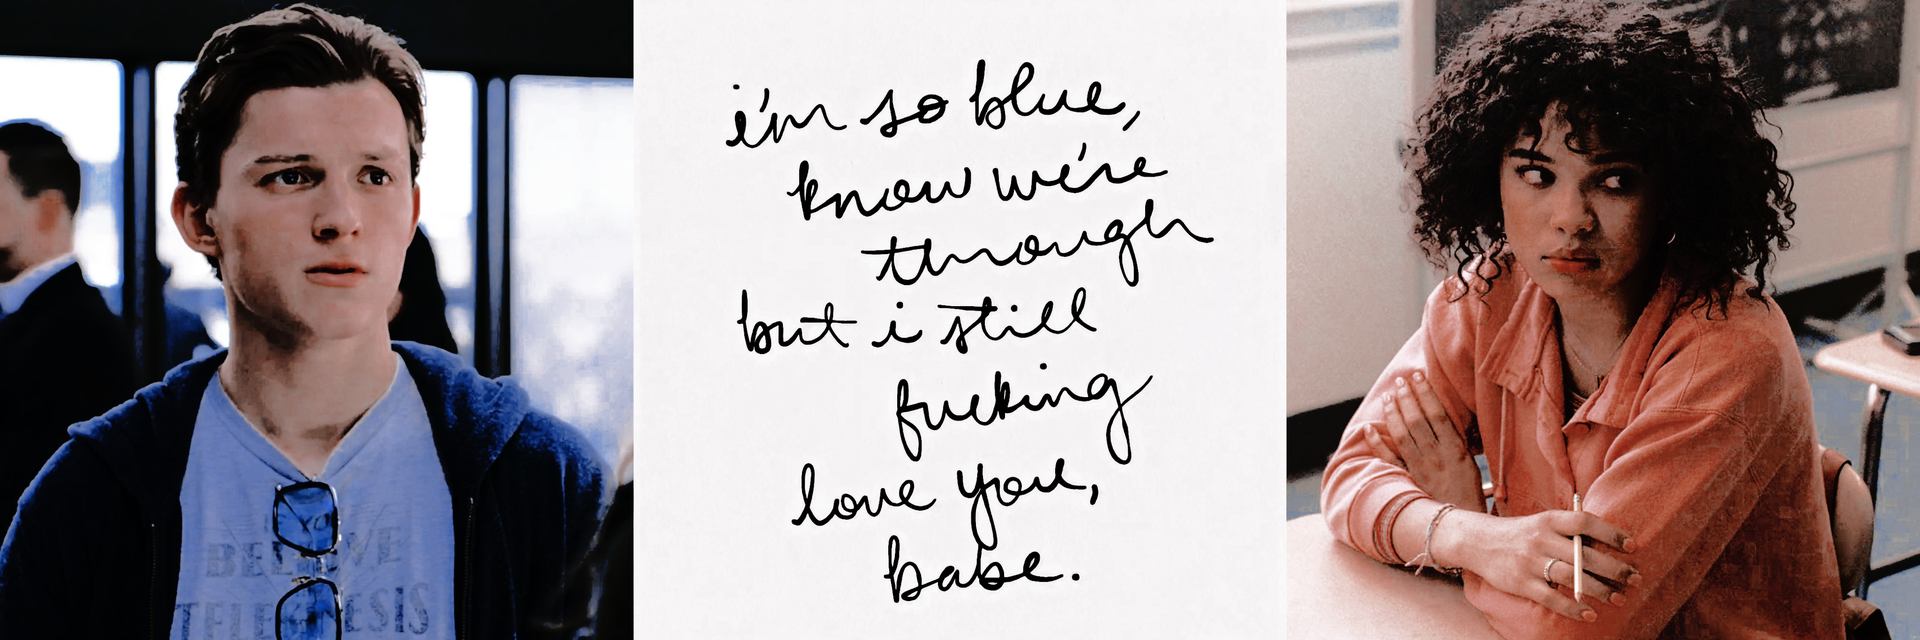 i'm so blue,
know we're
through
but i still
fucking
love you,
babe.
IF YOU
BELIEVE
TELEKINESIS